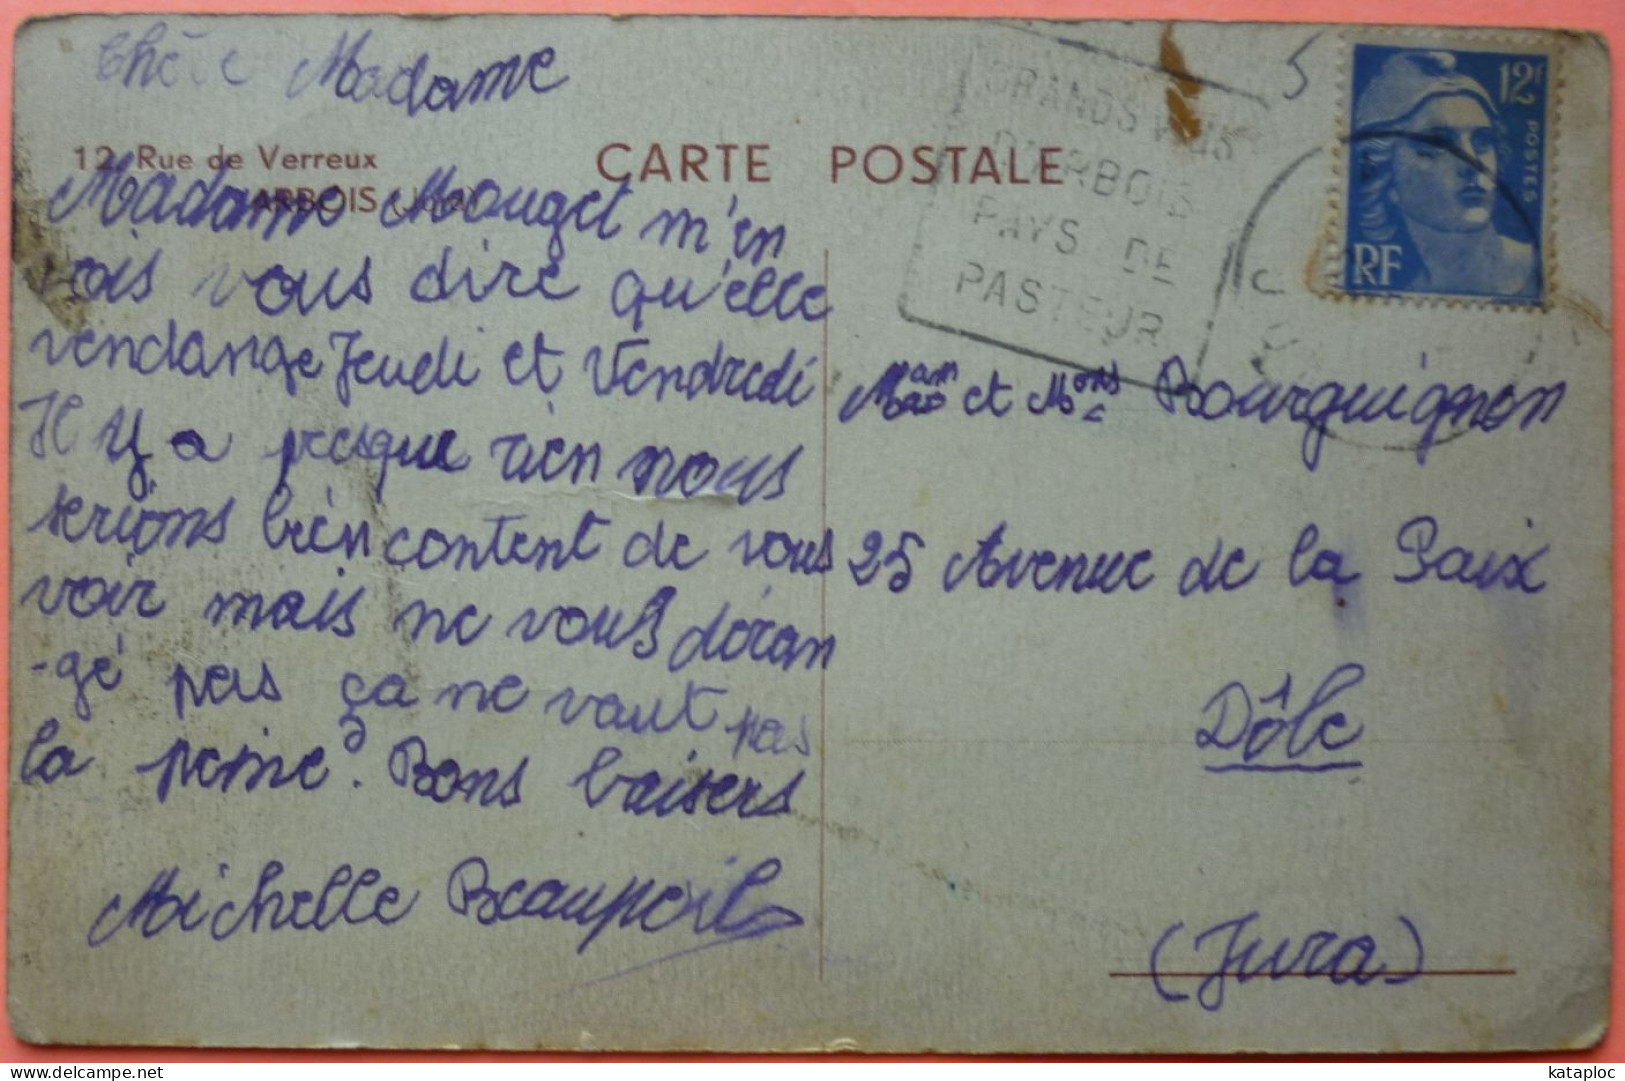 Chère Madame
12, Rue de Verreux
ARBOIS (Jura)
CARTE POSTALE
Madame Mouget m'en
vois vous dire qu'elle
vendange Jeudi et Vendredi
Il y a presque rien nous
serions bien content de vous
voir mais ne vous déran
-gé pas ça ne vaut pas
la peine. Bons baisers
Michelle Beaupoil
GRANDS VINS
D'ARBOIS
PAYS DE
PASTEUR
5
12F
POSTES
RF
et Mons Bourguignon
25 Avenue de la Paix
Dôle
(Jura)
kataploc